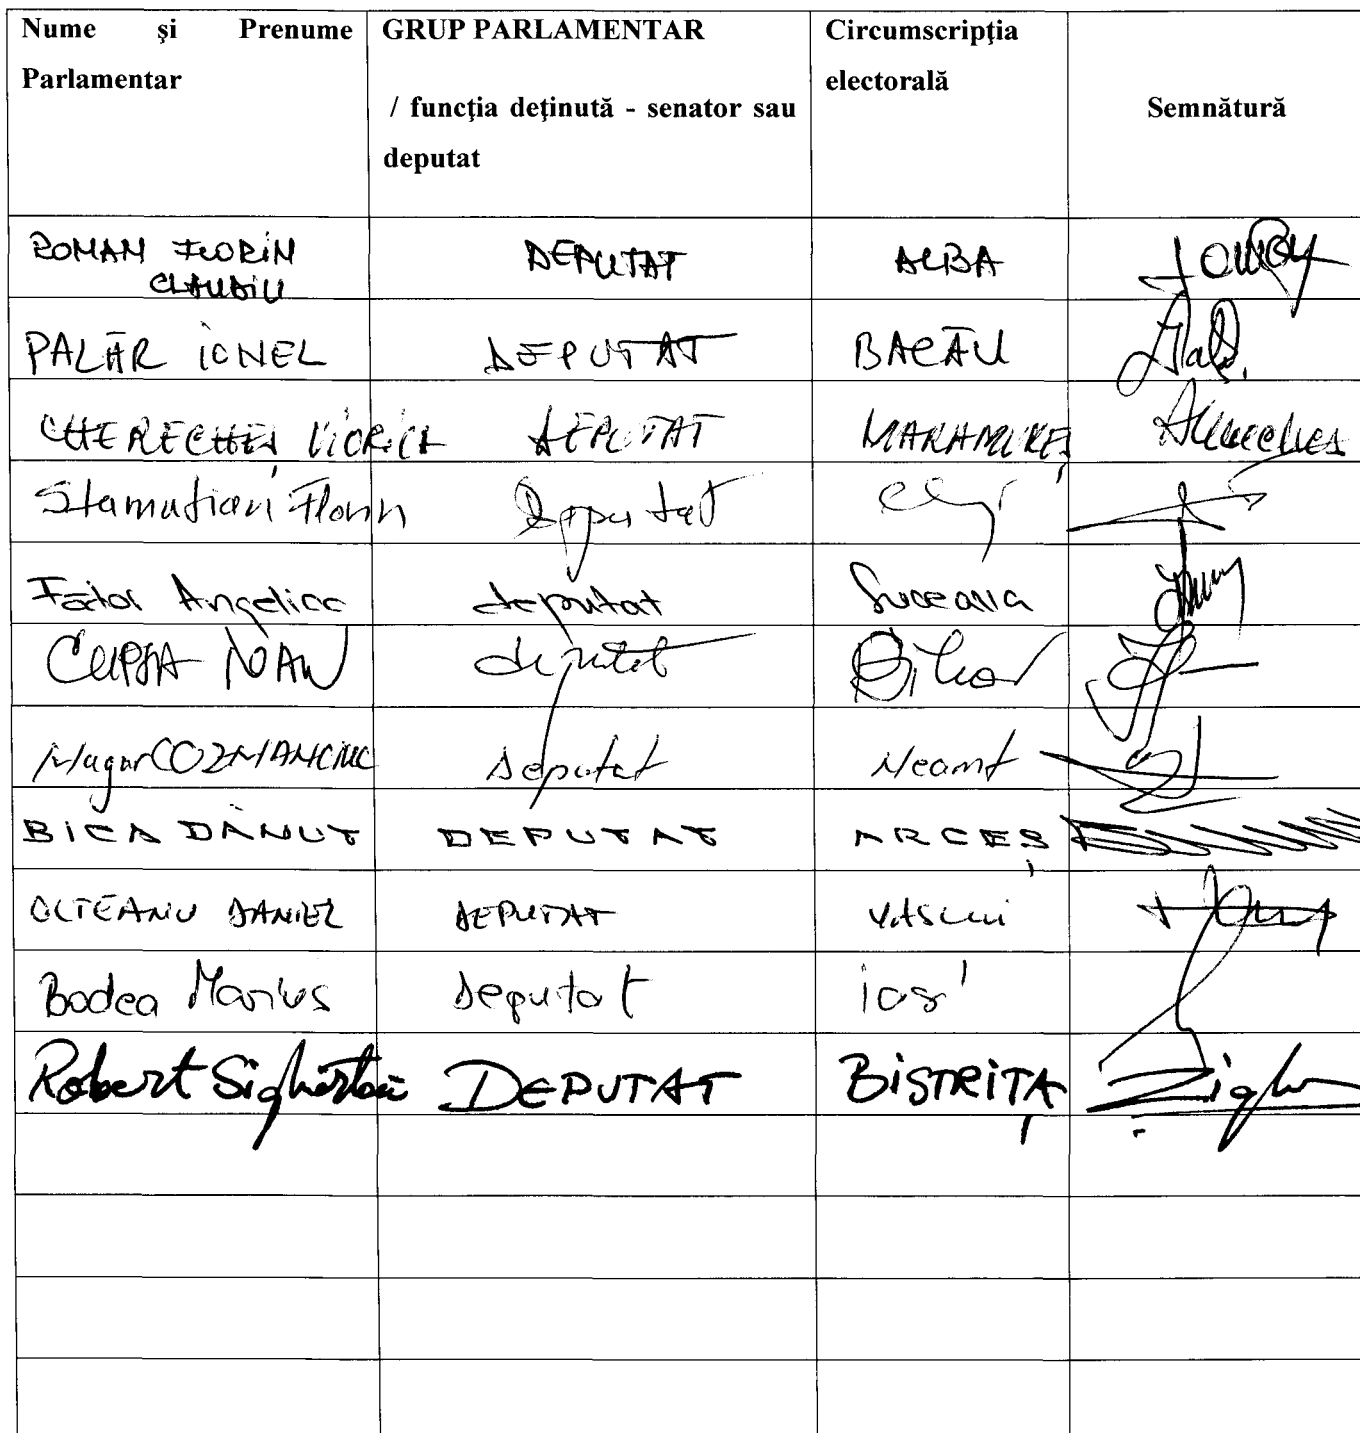 Nume şi Prenume Parlamentar
GRUP PARLAMENTAR
/ funcţia deţinută - senator sau deputat
Circumscripţia electorală
Semnătură
ROMAN FLORIN CLAUDIU DEPUTAT ALBA
PALĂR IONEL DEPUTAT BACĂU
CHERECHEȘ VIORICA DEPUTAT MARAMUREȘ
Stamatian Florin Deputat Cluj
Fădor Angelica deputat Suceava
CUPȘA IOAN deputat Bihor
Mugur COZMANCIUC Deputat Neamt
BICA DĂNUT DEPUTAT ARGEȘ
OLTEANU DANIEL DEPUTAT VASLUI
Bodea Marius Deputat iasi
Robert Sighiartău DEPUTAT BISTRIȚA